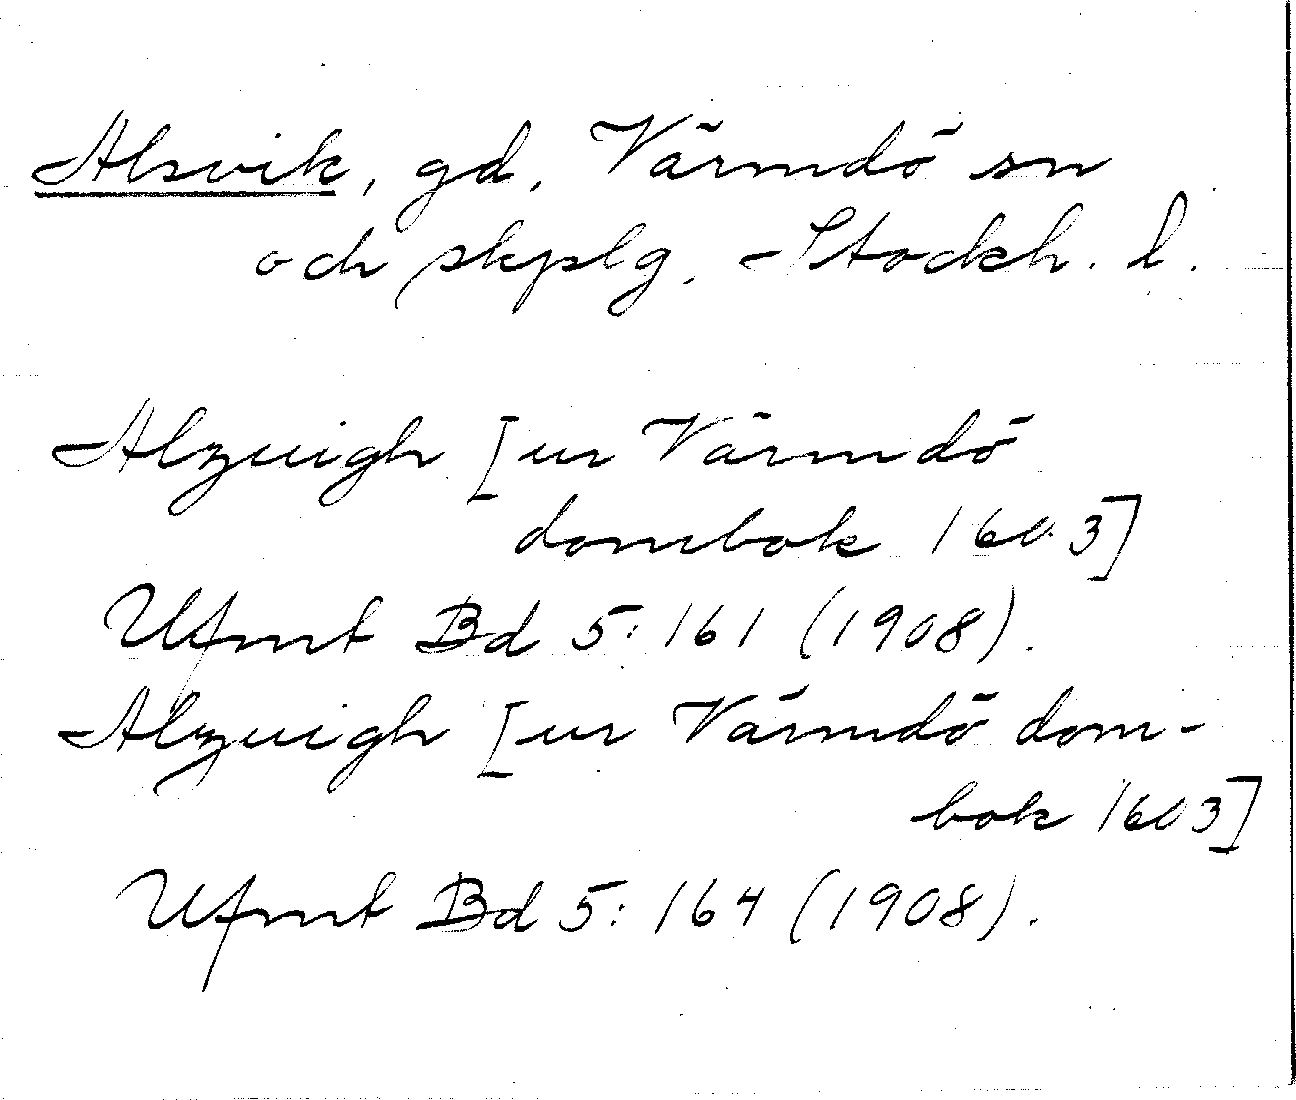 Alsvik, gd, Värmdö sn
och skplg, Stockh. l.
Alzuigh [ur Värmdö
dombok 1603]
Ufmt Bd 5: 161 (1908).
Alzuigh [ur Värmdö dom-
bok 1603]
Ufmt Bd 5: 164 (1908).